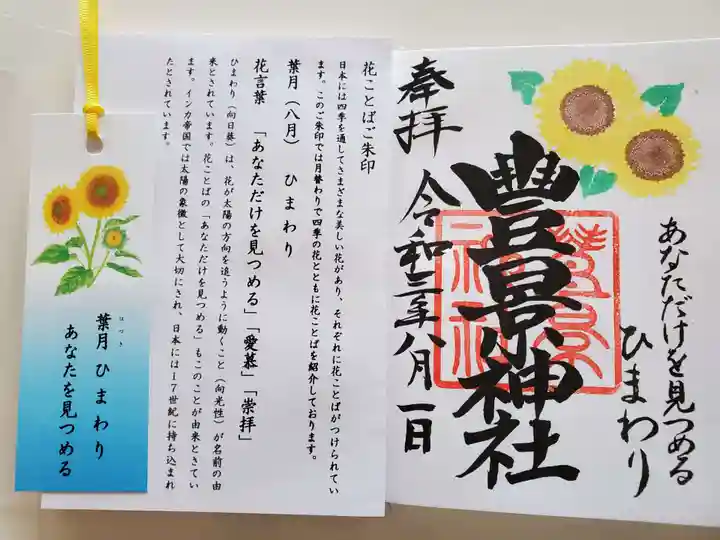 奉拝
豐景神社
令和三年八月一日
あなただけを見つめる
ひまわり
花ことばご朱印
日本には四季を通してさまざまな美しい花があり、それぞれに花ことばがつけられてい
ます。このご朱印では月替わりで四季の花とともに花ことばを紹介しております。
葉月(八月) ひまわり
花言葉 「あなただけを見つめる」「愛慕」「崇拝」
ひまわり(向日葵)は、花が太陽の方向を追うように動くこと(向光性)が名前の由
来とされています。花ことばの「あなただけを見つめる」もこのことが由来ときてい
ます。インカ帝国では太陽の象徴として大切にされ、日本には17世紀に持ち込まれ
たとされています。
葉月 ひまわり
はづき
あなたを見つめる